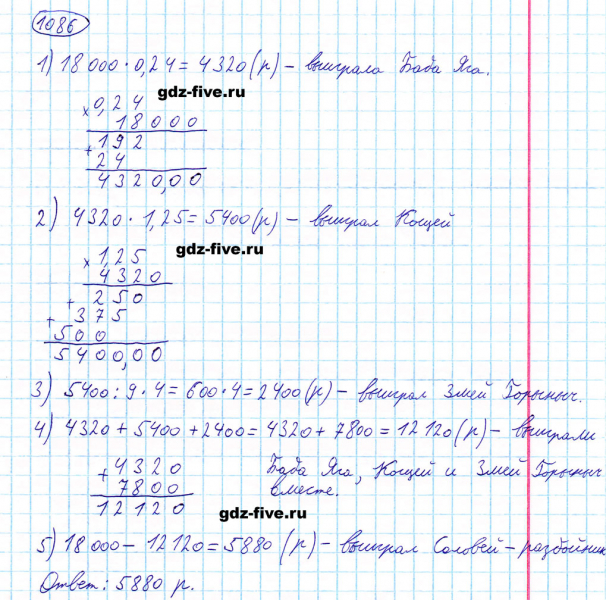 1086
1) 18 000 · 0,24 = 4320 (р) – выиграла Баба Яга.
gdz-five.ru
× 0,24
18000
+ 192
24
4320,00
2) 4320 · 1,25 = 5400 (р) – выиграл Кощей
gdz-five.ru
× 1,25
4320
+ 250
+ 375
500
5400,00
3) 5400 : 9 · 4 = 600 · 4 = 2400 (р) – выиграл Змей Горыныч.
4) 4320 + 5400 + 2400 = 4320 + 7800 = 12120 (р) – выиграли
Баба Яга, Кощей и Змей Горыныч
вместе.
+ 4320
7800
12120
gdz-five.ru
5) 18 000 – 12120 = 5880 (р) – выиграл Соловей – разбойник
Ответ: 5880 р.